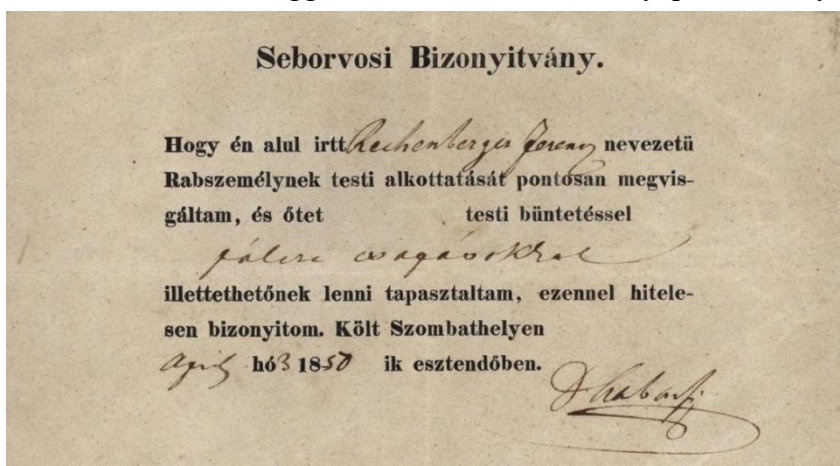 Seborvosi Bizonyitvány.
Hogy én alul irtt Rechenberger Ferenz nevezetü
Rabszemélynek testi alkottatását pontosan megvis-
gáltam, és őtet testi büntetéssel
illettethetőnek lenni tapasztaltam, ezennel hitele-
sen bizonyitom. Költ Szombathelyen
April hó 3 1850 ik esztendőben.